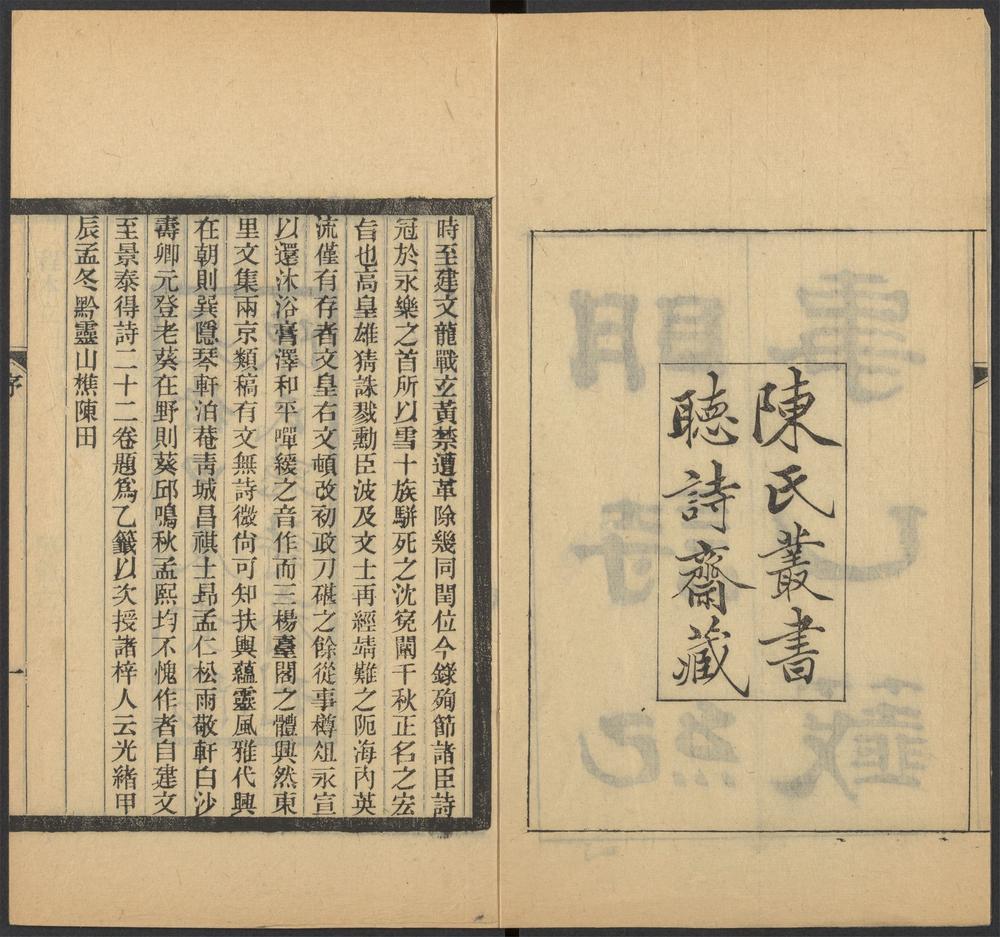 陳氏叢書
聽詩齋藏
時至建文龍戰玄黃禁遭革除幾同閏位今錄殉節諸臣詩
冠於永樂之首所以雪十族駢死之沈冤闡千秋正名之宏
旨也高皇雄猜誅戮勳臣波及文士再經靖難之阨海內英
流僅有存者文皇右文頓改初政刀磓之餘從事樽俎永宣
以還沐浴膏澤和平嘽緩之音作而三楊臺閣之體興然東
里文集兩京類稿有文無詩微尙可知扶輿蘊靈風雅代興
在朝則巽隱琴軒泊菴靑城昌祺士昻孟仁松雨敬軒白沙
壽卿元登老葵在野則葵邱鳴秋孟熙均不愧作者自建文
至景泰得詩二十二卷題爲乙籤以次授諸梓人云光緖甲
辰孟冬黔靈山樵陳田
序
一